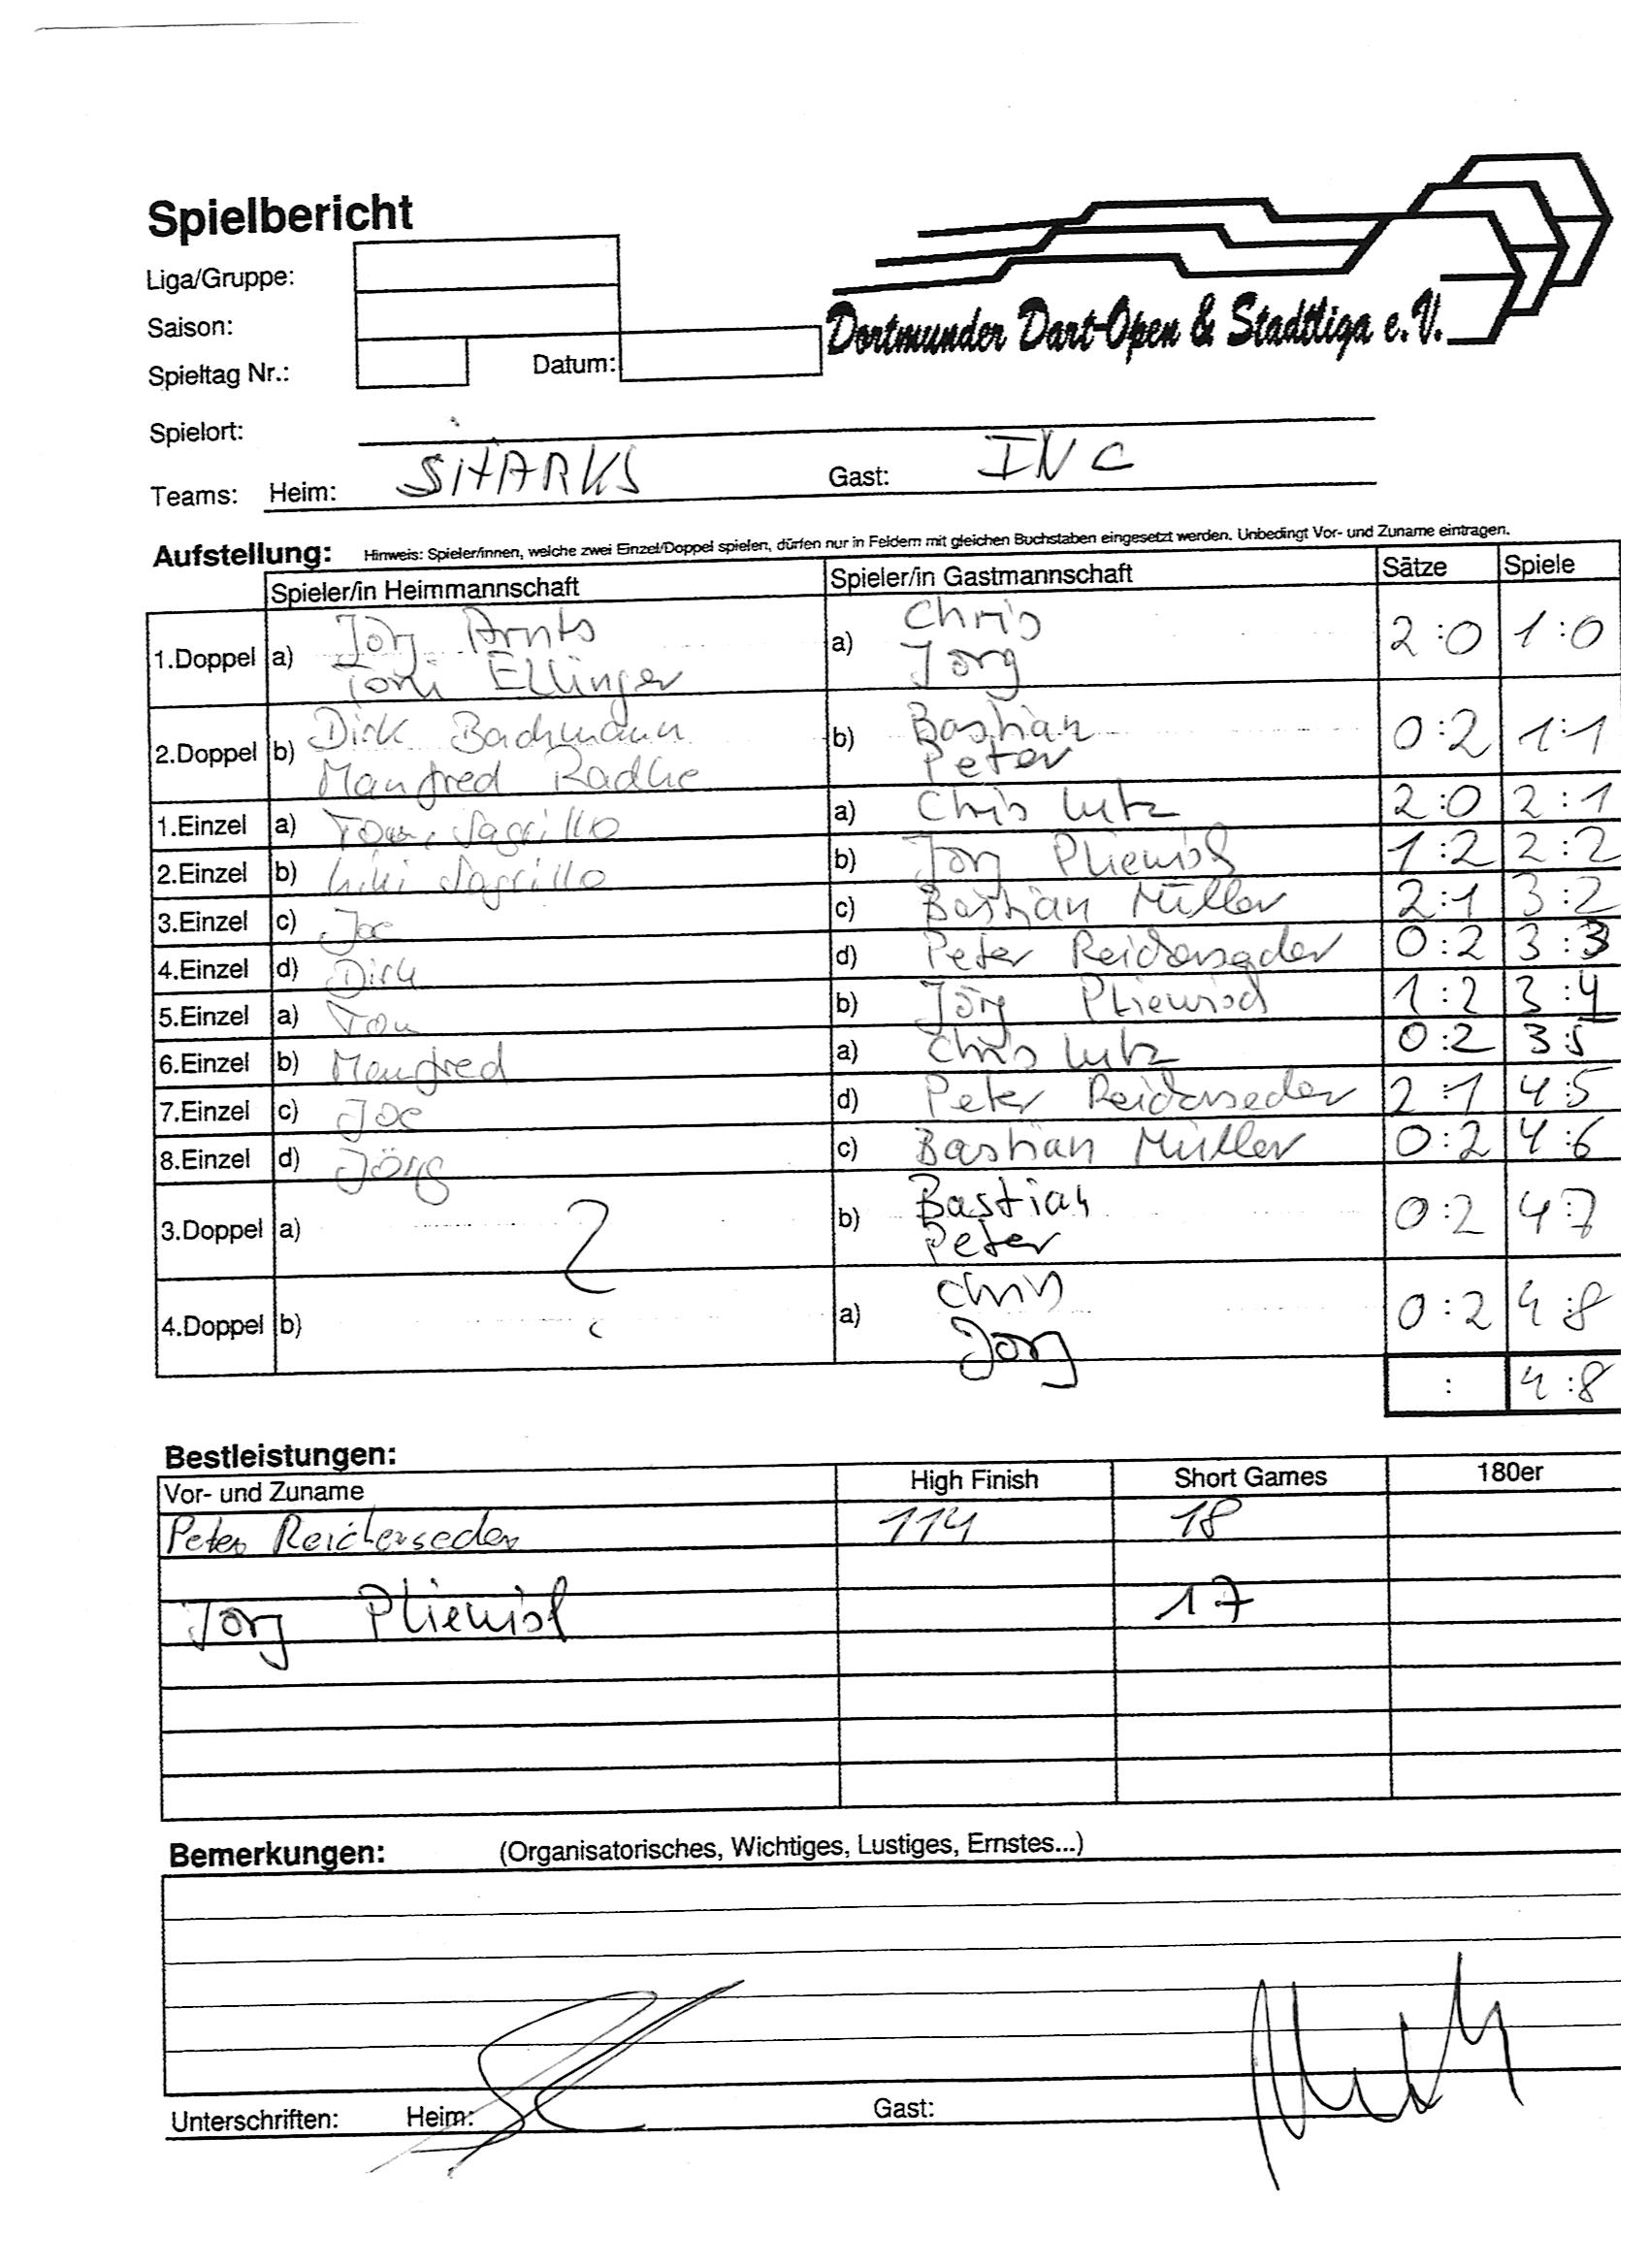 Spielbericht
Liga/Gruppe:
Saison:
Spieltag Nr.: Datum:
Dortmunder Dart-Open & Stadtliga e.V.
Spielort:
Teams: Heim: SHARKS Gast: INC
Aufstellung: Hinweis: Spieler/innen, welche zwei Einzel/Doppel spielen, dürfen nur in Feldern mit gleichen Buchstaben eingesetzt werden. Unbedingt Vor- und Zuname eintragen.
Spieler/in Heimmannschaft Spieler/in Gastmannschaft Sätze Spiele
1.Doppel a) Jörg Arnts a) Chris 2:0 1:0
Ellinger Jörg
2.Doppel b) Dirk Bachmann b) Bastian 0:2 1:1
Manfred Radke Peter
1.Einzel a) Sagrillo a) Chris Lutz 2:0 2:1
2.Einzel b) Sagrillo b) Jörg 1:2 2:2
3.Einzel c) Joe c) Bastian Müller 2:1 3:2
4.Einzel d) Dirk d) Peter Reickerseder 0:2 3:3
5.Einzel a) Tom b) Jörg 1:2 3:4
6.Einzel b) Manfred a) Chris Lutz 0:2 3:5
7.Einzel c) Joe d) Peter Reickerseder 2:1 4:5
8.Einzel d) Jörg c) Bastian Müller 0:2 4:6
3.Doppel a) b) Bastian 0:2 4:7
Peter
4.Doppel b) ? a) Chris 0:2 4:8
Jörg
: 4:8
Bestleistungen:
Vor- und Zuname High Finish Short Games 180er
Peter Reickerseder 114 18
Jörg 17
Bemerkungen: (Organisatorisches, Wichtiges, Lustiges, Ernstes...)
Unterschriften: Heim: Gast: